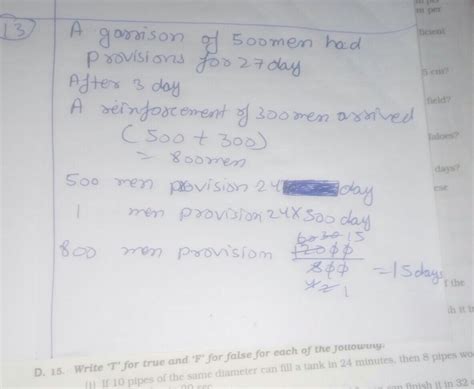 13
A garrison of 500men had
provisions for 27day
After 3 day
A reinforcement of 300men arrived
(500 + 300)
= 800men
500 men provision 24 day
1 men provision 24×500 day
800 men provision 12000/800 = 15days
60 30 15
42 1
m per
ficient
5 cm?
field?
days?
f the
D. 15. Write 'T' for true and 'F' for false for each of the following.
(i) If 10 pipes of the same diameter can fill a tank in 24 minutes, then 8 pipes wo
an finish it in 32